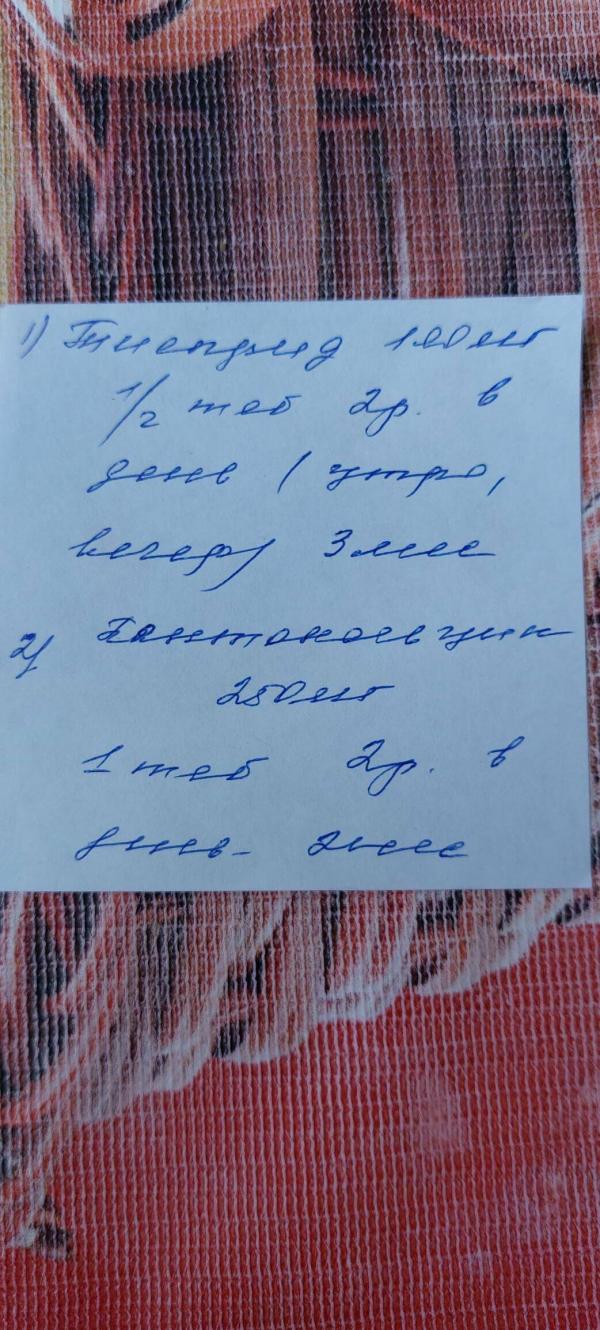 1) Тиаприд 100мг
1/2 таб 2р. в
день (утро,
вечер) 3 мес
2) Пантокальцин
250мг
1 таб 2р. в
день - 2 мес